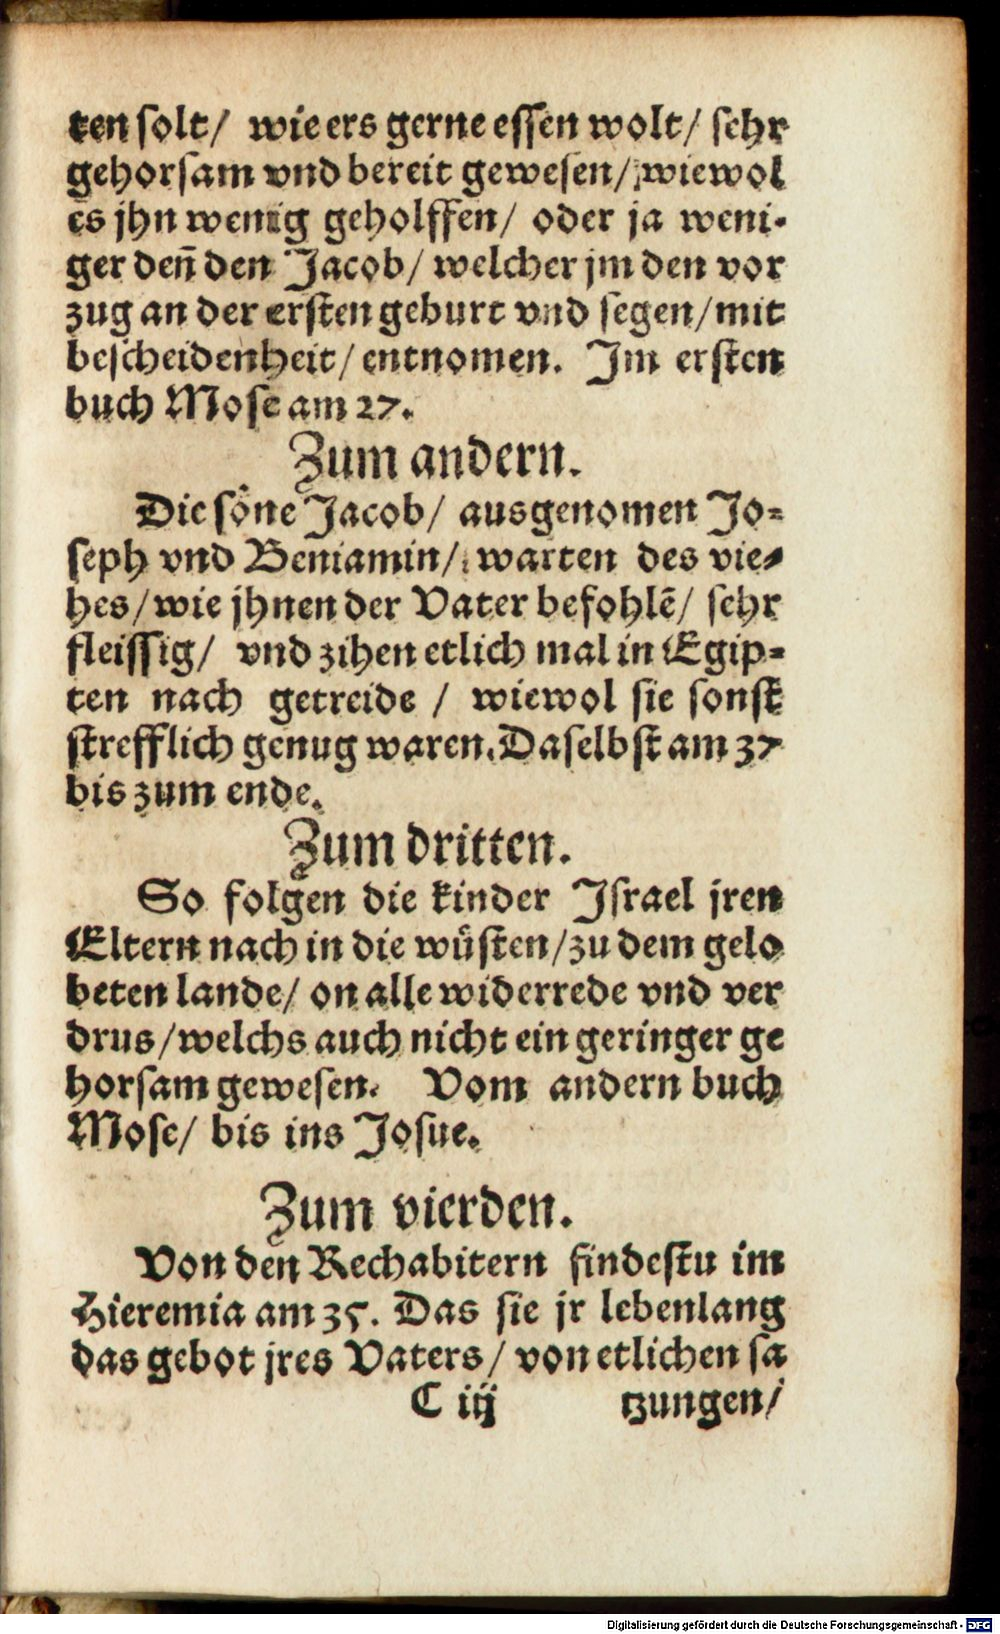 ten solt/ wie ers gerne essen wolt/ sehr
gehorsam vnd bereit gewesen/ wiewol
es jhn wenig geholffen/ oder ja weni-
ger deñ den Jacob/ welcher jm den vor
zug an der ersten geburt vnd segen/ mit
bescheidenheit/ entnomen. Im ersten
buch Mose am 27.
Zum andern.
Die söne Jacob/ ausgenomen Jo=
seph vnd Beniamin/ warten des vie=
hes/ wie jhnen der Vater befohlē/ sehr
fleissig/ vnd zihen etlich mal in Egip=
ten nach getreide / wiewol sie sonst
strefflich genug waren. Daselbst am 37
bis zum ende.
Zum dritten.
So folgen die kinder Israel jren
Eltern nach in die wüsten/ zu dem gelo
beten lande/ on alle widerrede vnd ver
drus/ welchs auch nicht ein geringer ge
horsam gewesen. Vom andern buch
Mose/ bis ins Josue.
Zum vierden.
Von den Rechabitern findestu im
Hieremia am 35. Das sie jr lebenlang
das gebot jres Vaters/ von etlichen sa
C iij tzungen/
Digitalisierung gefördert durch die Deutsche Forschungsgemeinschaft - DFG